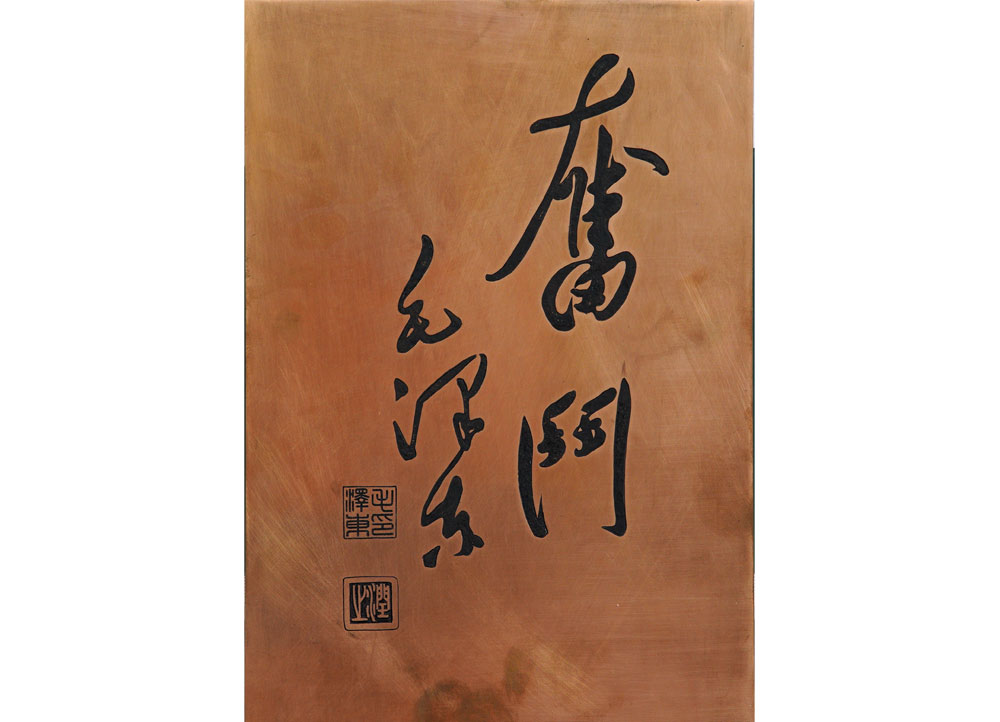 奮鬥
毛澤東
毛澤東印
潤之